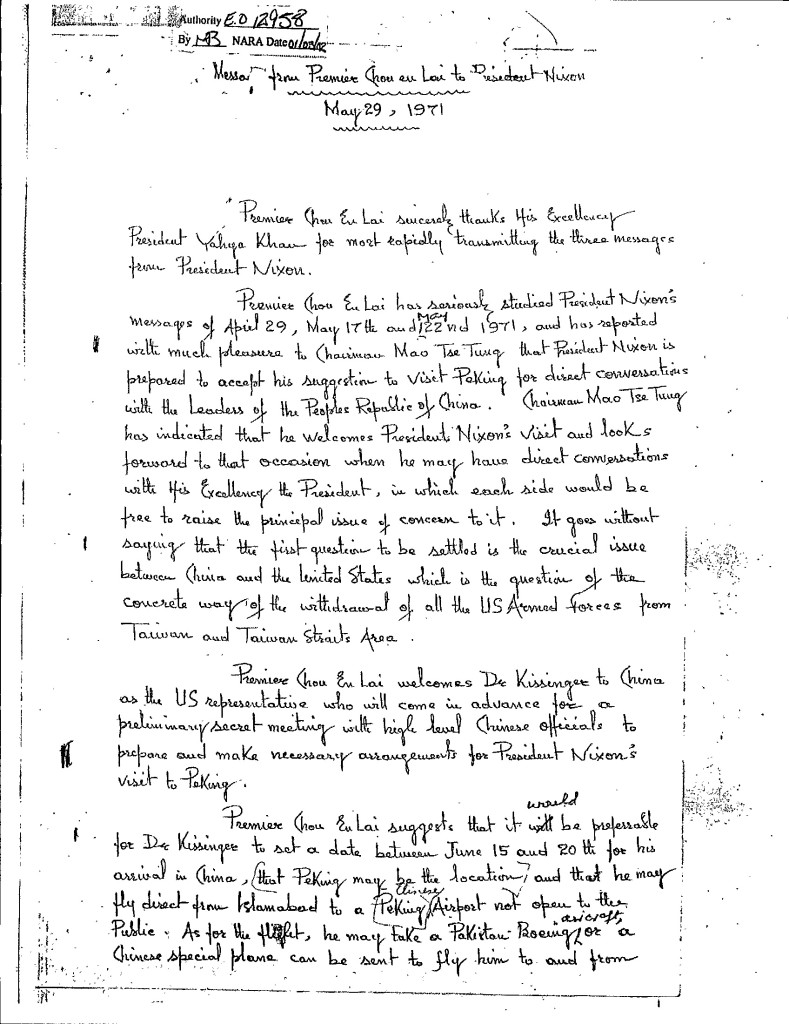 Authority E.O 12958
By MB NARA Date 01/03/02
from Premier Chou en Lai to President Nixon
May 29, 1971
" Premier Chou En Lai sincerely thanks His Excellency
President Yahya Khan for most rapidly transmitting the three messages
from President Nixon.
Premier Chou En Lai has seriously studied President Nixon's
messages of April 29, May 17th and May 22nd 1971, and has reported
with much pleasure to Chairman Mao Tse Tung that President Nixon is
prepared to accept his suggestion to visit Peking for direct conversations
with the Leaders of the Peoples Republic of China. Chairman Mao Tse Tung
has indicated that he welcomes President Nixon's visit and looks
forward to that occasion when he may have direct conversations
with His Excellency the President, in which each side would be
free to raise the principal issue of concern to it. It goes without
saying that the first question to be settled is the crucial issue
between China and the United States which is the question of the
concrete way of the withdrawal of all the US Armed forces from
Taiwan and Taiwan Straits Area.
Premier Chou En Lai welcomes Dr Kissinger to China
as the US representative who will come in advance for a
preliminary secret meeting with high level Chinese officials to
prepare and make necessary arrangements for President Nixon's
visit to Peking.
Premier Chou En Lai suggests that it would be preferrable
for Dr Kissinger to set a date between June 15 and 20th for his
arrival in China, (that Peking may be the location) and that he may
fly direct from Islamabad to a Chinese (Peking) Airport not open to the
Public. As for the flight, he may take a Pakistan Boeing aircraft, or a
Chinese special plane can be sent to fly him to and from